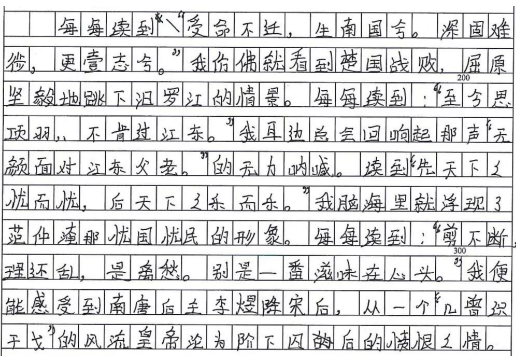 每每读到“受命不迁，生南国兮。深固难
徙，更壹志兮。”我仿佛就看到楚国战败，屈原
200
坚毅地跳下汨罗江的情景。每每读到：“至今思
项羽，不肯过江东。”我耳边总会回响起那声“无
颜面对江东父老。”的无力呐喊。读到“先天下之
忧而忧，后天下之乐而乐。”我脑海里就浮现了
范仲淹那忧国忧民的形象。每每读到：“剪不断，
300
理还乱，是离愁。别是一番滋味在心头。”我便
能感受到南唐后主李煜降宋后，从一个“几曾识
干戈”的风流皇帝沦为阶下囚的后的愤恨之情。